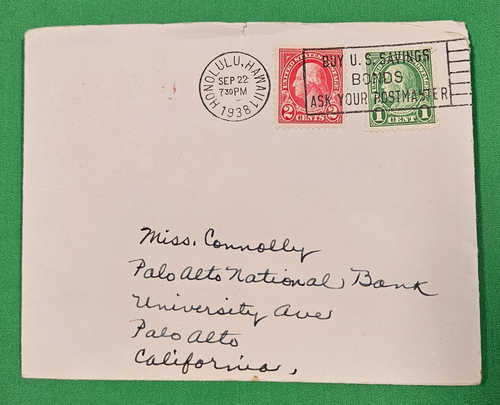 HONOLULU, HAWAII
SEP 22
7:30PM
1938
BUY U.S. SAVINGS
BONDS
ASK YOUR POSTMASTER
UNITED STATES POSTAGE
2 CENTS 2
1 CENT 1
Miss. Connolly
Palo Alto National Bank
University Ave
Palo Alto
California,